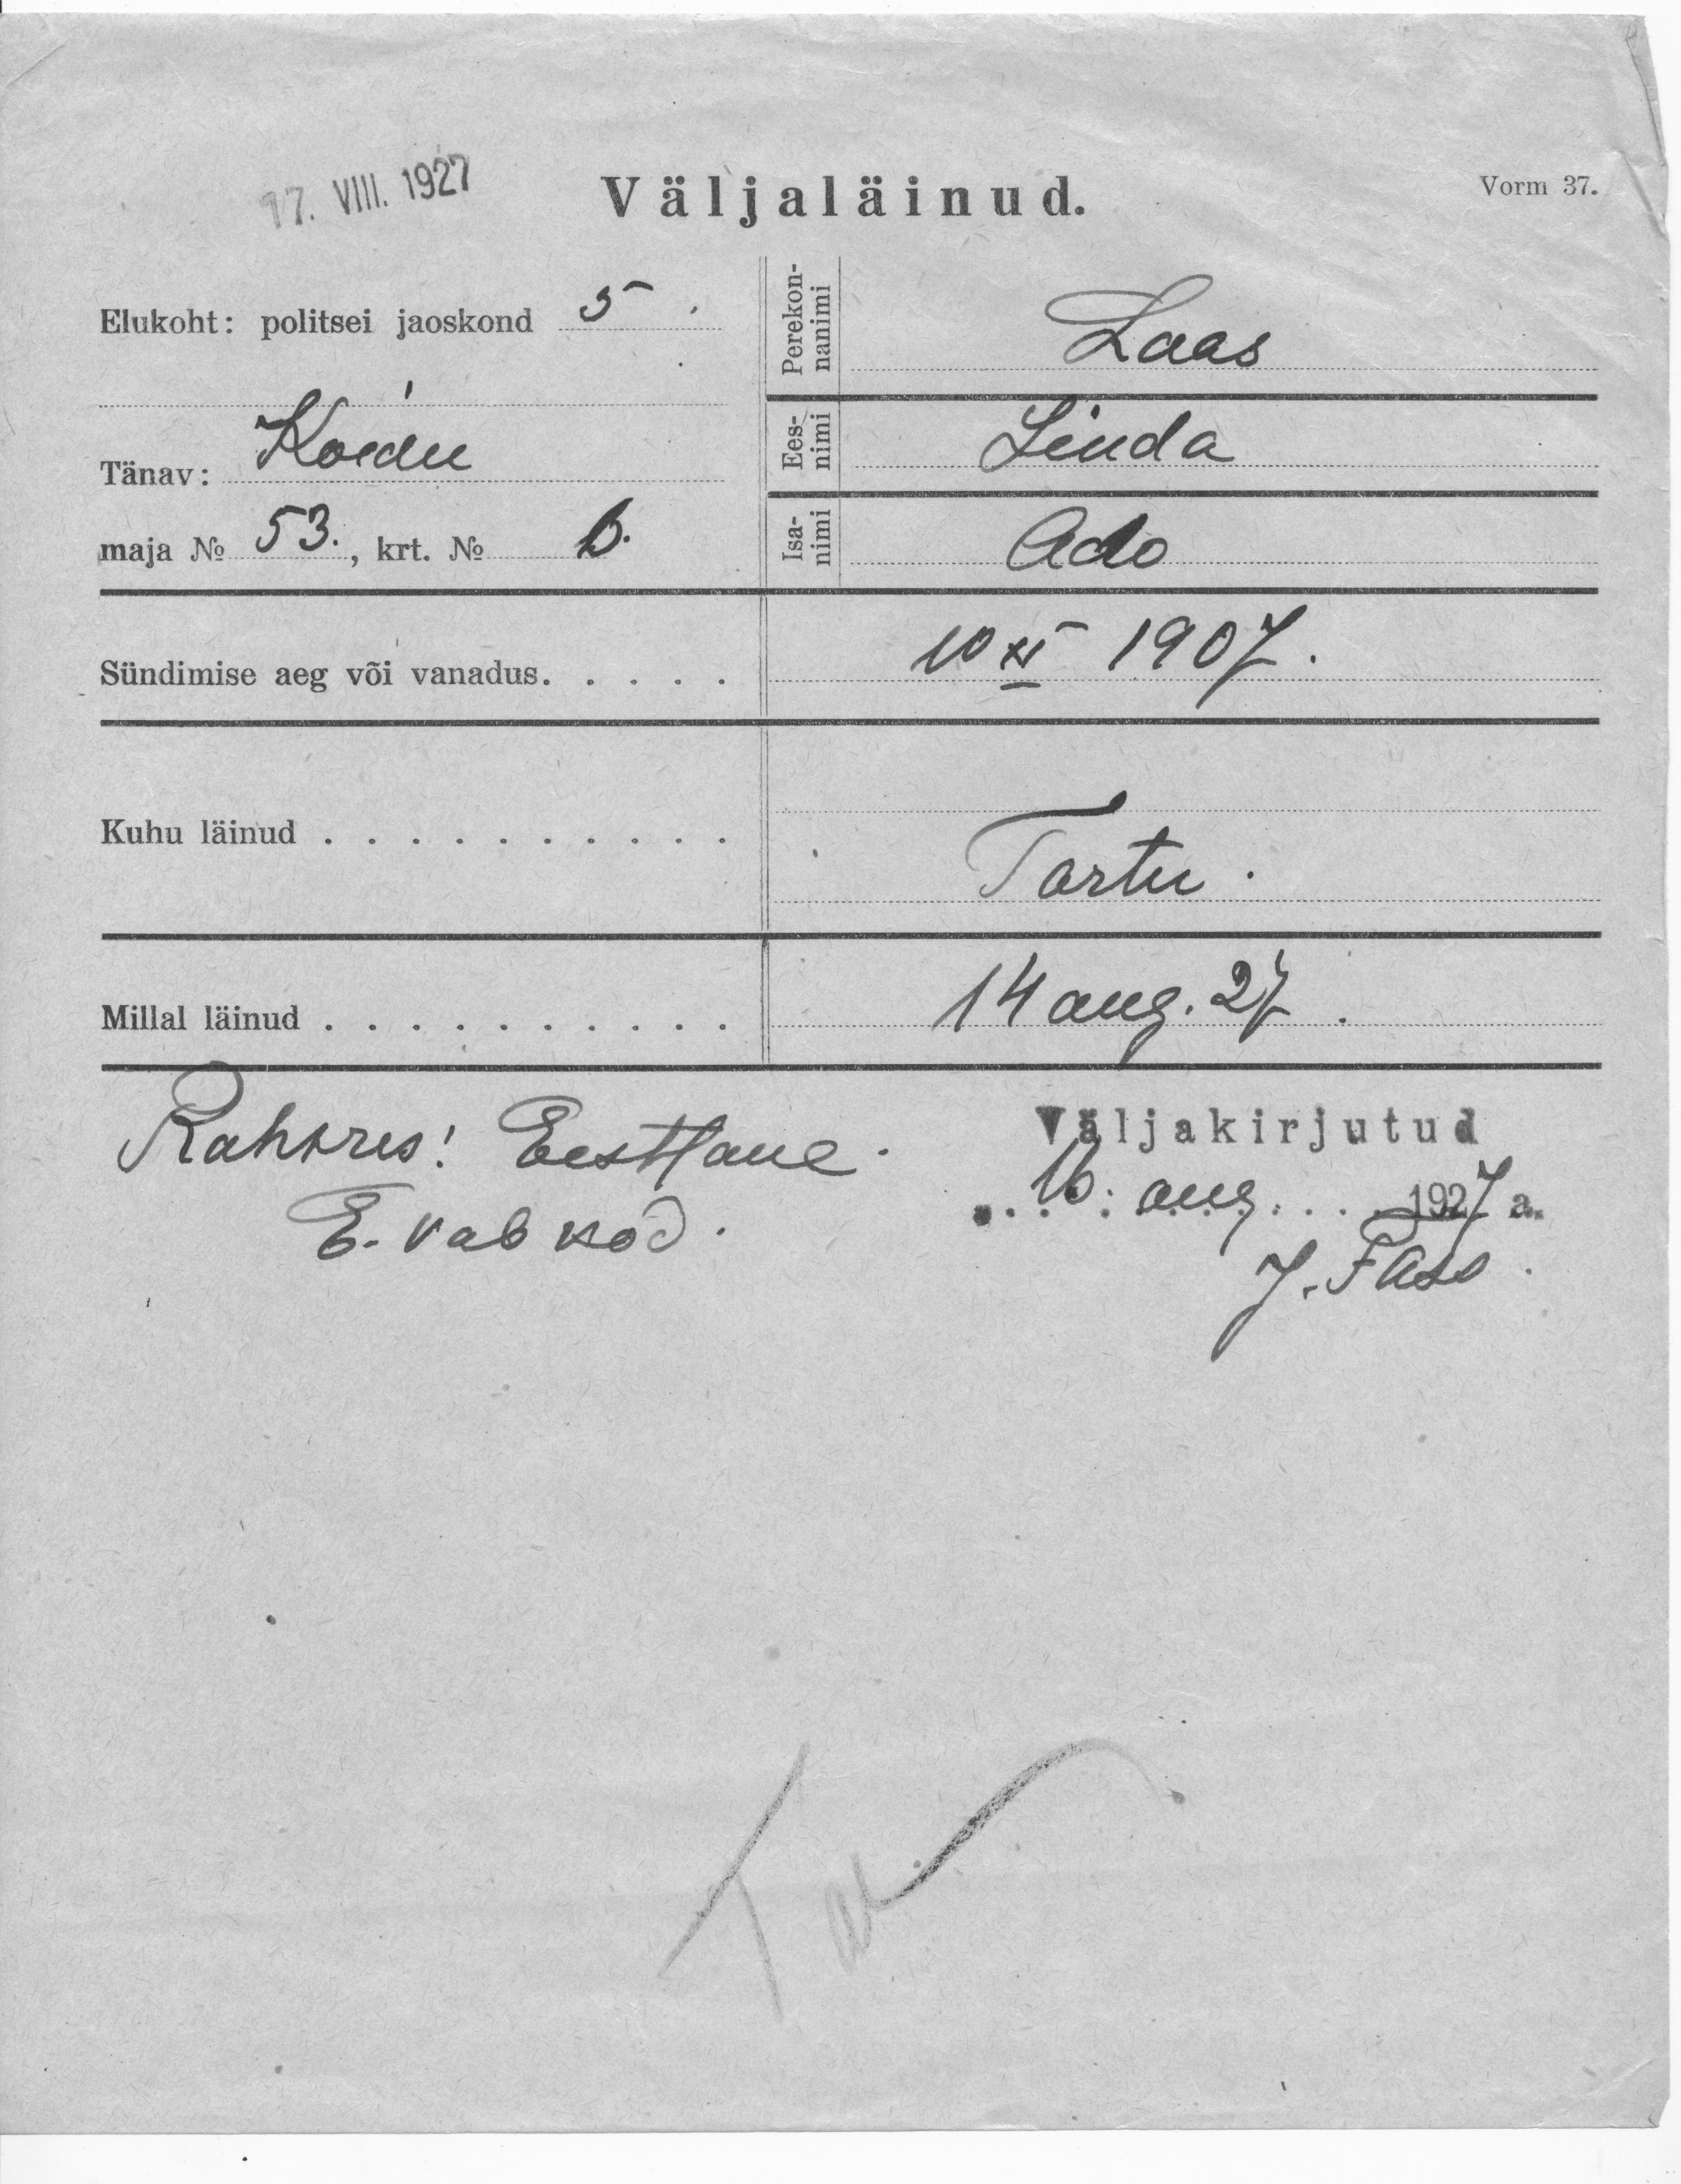 17. VIII. 1927
Väljaläinud.
Vorm 37.
Elukoht: politsei jaoskond 5.
Tänav: Koidu
maja № 53., krt. № 6.
Perekon-
nanimi
Laas
Ees-
nimi
Linda
Isa-
nimi
Ado
Sündimise aeg või vanadus. . . . . .
10 XI 1907.
Kuhu läinud . . . . . . . . . . .
Tartu.
Millal läinud . . . . . . . . . . .
14 aug. 27.
Rahvus: Eestlane.
E. vab kod.
Väljakirjutud
16. aug. 1927 a.
J. Pass.